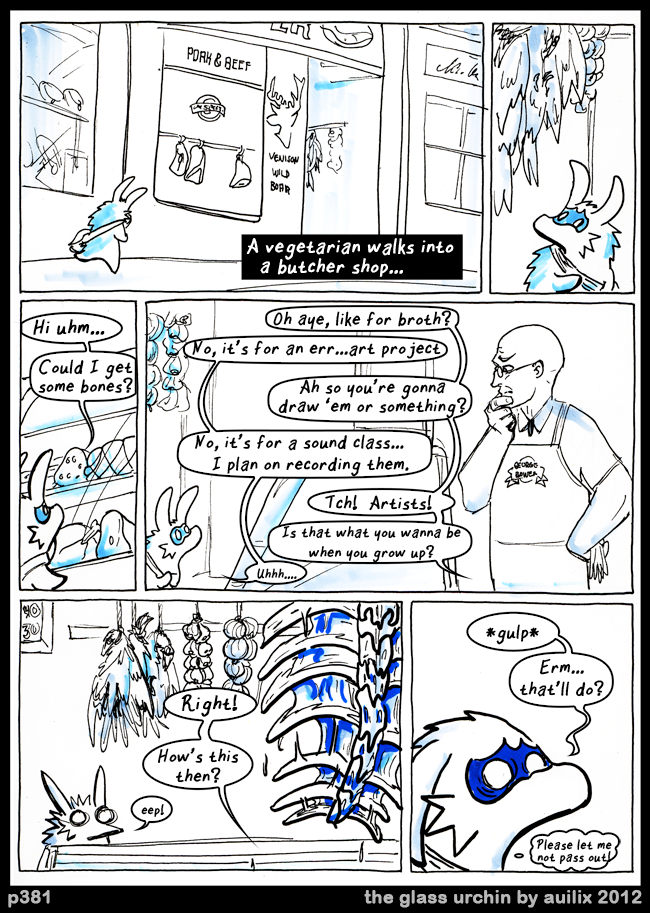 PORK & BEEF
VENISON
WILD
BOAR
A vegetarian walks into
a butcher shop...
Hi uhm...
Could I get
some bones?
Oh aye, like for broth?
No, it's for an err...art project
Ah so you're gonna
draw 'em or something?
No, it's for a sound class...
I plan on recording them.
Tch! Artists!
Is that what you wanna be
when you grow up?
Uhhh....
GEORGE
BOWER
Right!
How's this
then?
eep!
*gulp*
Erm...
that'll do?
Please let me
not pass out!
p381
the glass urchin by auilix 2012